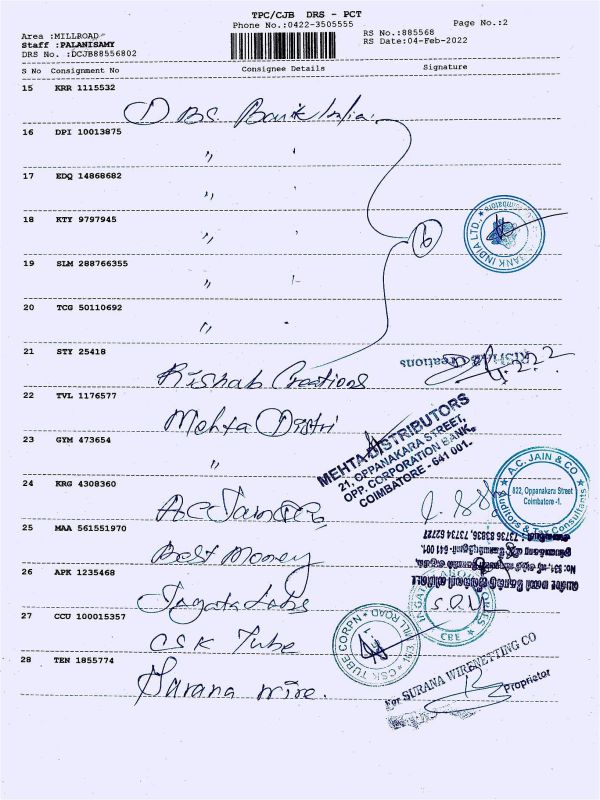 TPC/CJB DRS - PCT
Phone No.:0422-3505555
Page No.:2
Area :MILLROAD
Staff :PALANISAMY
DRS No. :DCJB88556802
RS No.:885568
RS Date:04-Feb-2022
S No Consignment No Consignee Details Signature
15 KRR 1115532
DBS Bank India
16 DPI 10013875
"
17 EDQ 14868682
"
18 KTY 9797945
"
6
BANK INDIA LTD.
19 SLM 288766355
"
20 TCG 50110692
"
21 STY 25418
Rishab Creations
Creations
22 TVL 1176577
Mehta Distri
MEHTA DISTRIBUTORS
21, OPPANAKARA STREET,
OPP. CORPORATION BANK,
COIMBATORE - 641 001.
23 GYM 473654
"
24 KRG 4308360
A C Jain & Co
A.C. JAIN & CO
822, Oppanakara Street
Coimbatore -1.
Auditors & Tax Consultants
25 MAA 561551970
Best Money
26 APK 1235468
Ingata Labs
CBE
27 CCU 100015357
CSK Tube
CSK TUBE CORPN
MILL ROAD
28 TEN 1855774
Surana wire.
For SURANA WIRENETTING CO
Proprietor